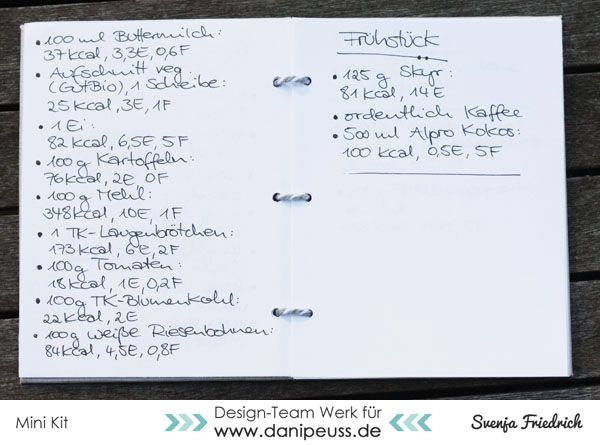 • 100 ml Buttermilch:
37 kcal, 3,3E, 0,6F
• Aufschnitt veg.
(GutBio), 1 Scheibe:
25 kcal, 3E, 1F
• 1 Ei:
82 kcal, 6,5E, 5F
• 100 g Kartoffeln:
76 kcal, 2E, 0F
• 100 g Mehl:
348 kcal, 10E, 1F
• 1 TK-Laugenbrötchen:
173 kcal, 6E, 2F
• 100g Tomaten:
18 kcal, 1E, 0,2F
• 100g TK-Blumenkohl:
22 kcal, 2E
• 100g weiße Riesenbohnen:
84 kcal, 4,5E, 0,8F
Frühstück
• 125 g Skyr:
81 kcal, 14E
• ordentlich Kaffee
• 500 ml Alpro Kokos:
100 kcal, 0,5E, 5F
Mini Kit
Design-Team Werk für
www.danipeuss.de
Svenja Friedrich